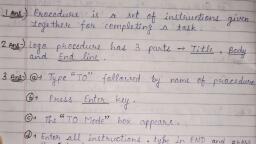 1 Ans) Procedure is a set of instructions given
together for completing a task.
2 Ans) Logo procedure has 3 parts → Title, Body
and End line.
3 Ans) a→ Type "TO" followed by name of procedure
b→ Press Enter key.
c→ the "TO Mode" box appears.
d→ Enter all instructions, type in END and